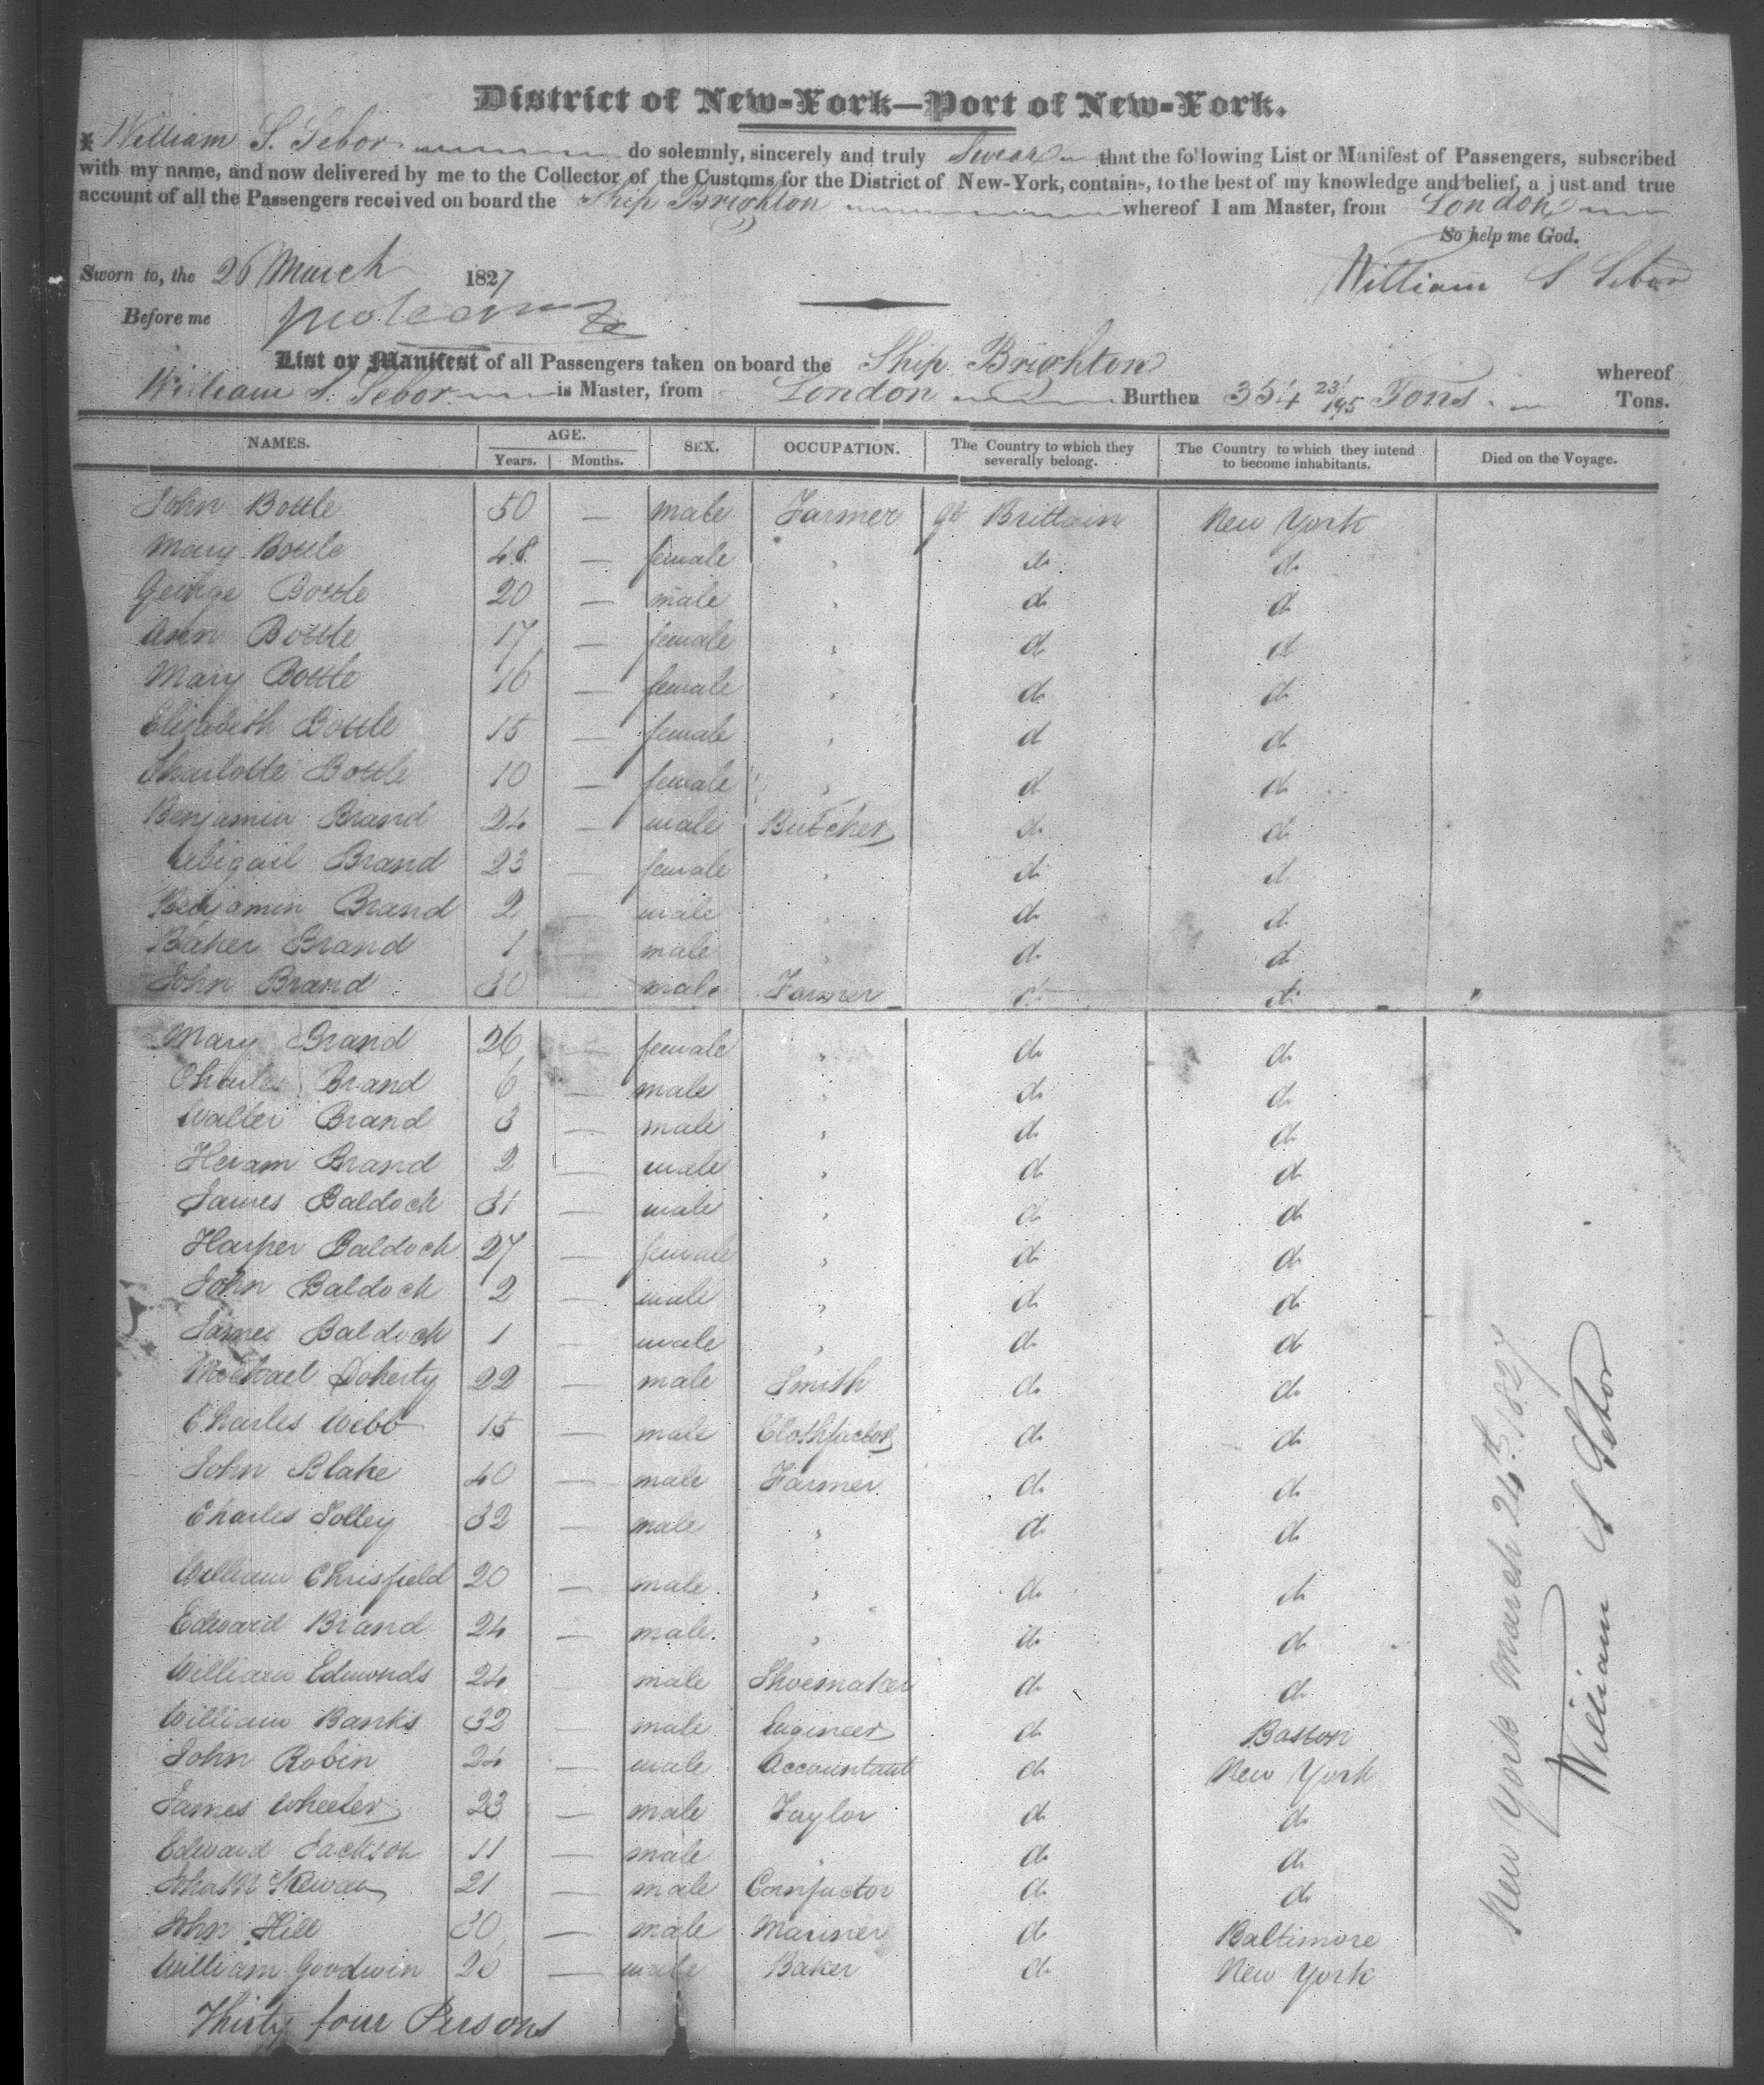 District of New-York—Port of New-York.
I William S. Sebor do solemnly, sincerely and truly Swear that the following List or Manifest of Passengers, subscribed
with my name, and now delivered by me to the Collector of the Customs for the District of New-York, contains, to the best of my knowledge and belief, a just and true
account of all the Passengers received on board the Ship Brighton whereof I am Master, from London
So help me God.
Sworn to, the 26 March 1827
William S Sebor
Before me
List or Manifest of all Passengers taken on board the Ship Brighton whereof
William S. Sebor is Master, from London Burthen 354 23/95 Tons. Tons.
NAMES. AGE. SEX. OCCUPATION. The Country to which they severally belong. The Country to which they intend to become inhabitants. Died on the Voyage.
Years. Months.
John Bottle 50 — male Farmer Gt Brittain New York
Mary Bottle 48 — female " do do
George Bottle 20 — male " do do
Ann Bottle 17 — female " do do
Mary Bottle 16 — female " do do
Elizabeth Bottle 15 — female " do do
Charlotte Bottle 10 — female " do do
Benjamin Brand 24 — male Butcher do do
Abigail Brand 23 — female " do do
Benjamin Brand 2 — male " do do
Baker Brand 1 — male " do do
John Brand 30 male Farmer do do
Mary Brand 26 — female " do do
Charles Brand 6 — male " do do
Walter Brand 3 — male " do do
Heram Brand 2 — male " do do
James Baldock 31 — male " do do
Harper Baldock 27 — female " do do
John Baldock 2 — male " do do
James Baldock 1 — male " do do
Michael Doherty 22 — male Smith do do
Charles Webb 15 — male Clothfactor do do
John Blake 40 — male Farmer do do
Charles Solley 32 — male " do do
William Chrisfield 20 — male " do do
Edward Brand 24 — male " do do
William Edmonds 24 — male Shoemaker do do
William Banks 32 — male Engineer do Boston
John Robin 24 — male Accountant do New York
James Wheeler 23 — male Taylor do do
Edward Jackson 11 — male " do do
21 — male Cornfactor do do
John Hill 30 — male Mariner do Baltimore
William Goodwin 26 — male Baker do New York
Thirty four Persons
New York March 24th 1827
William S Sebor